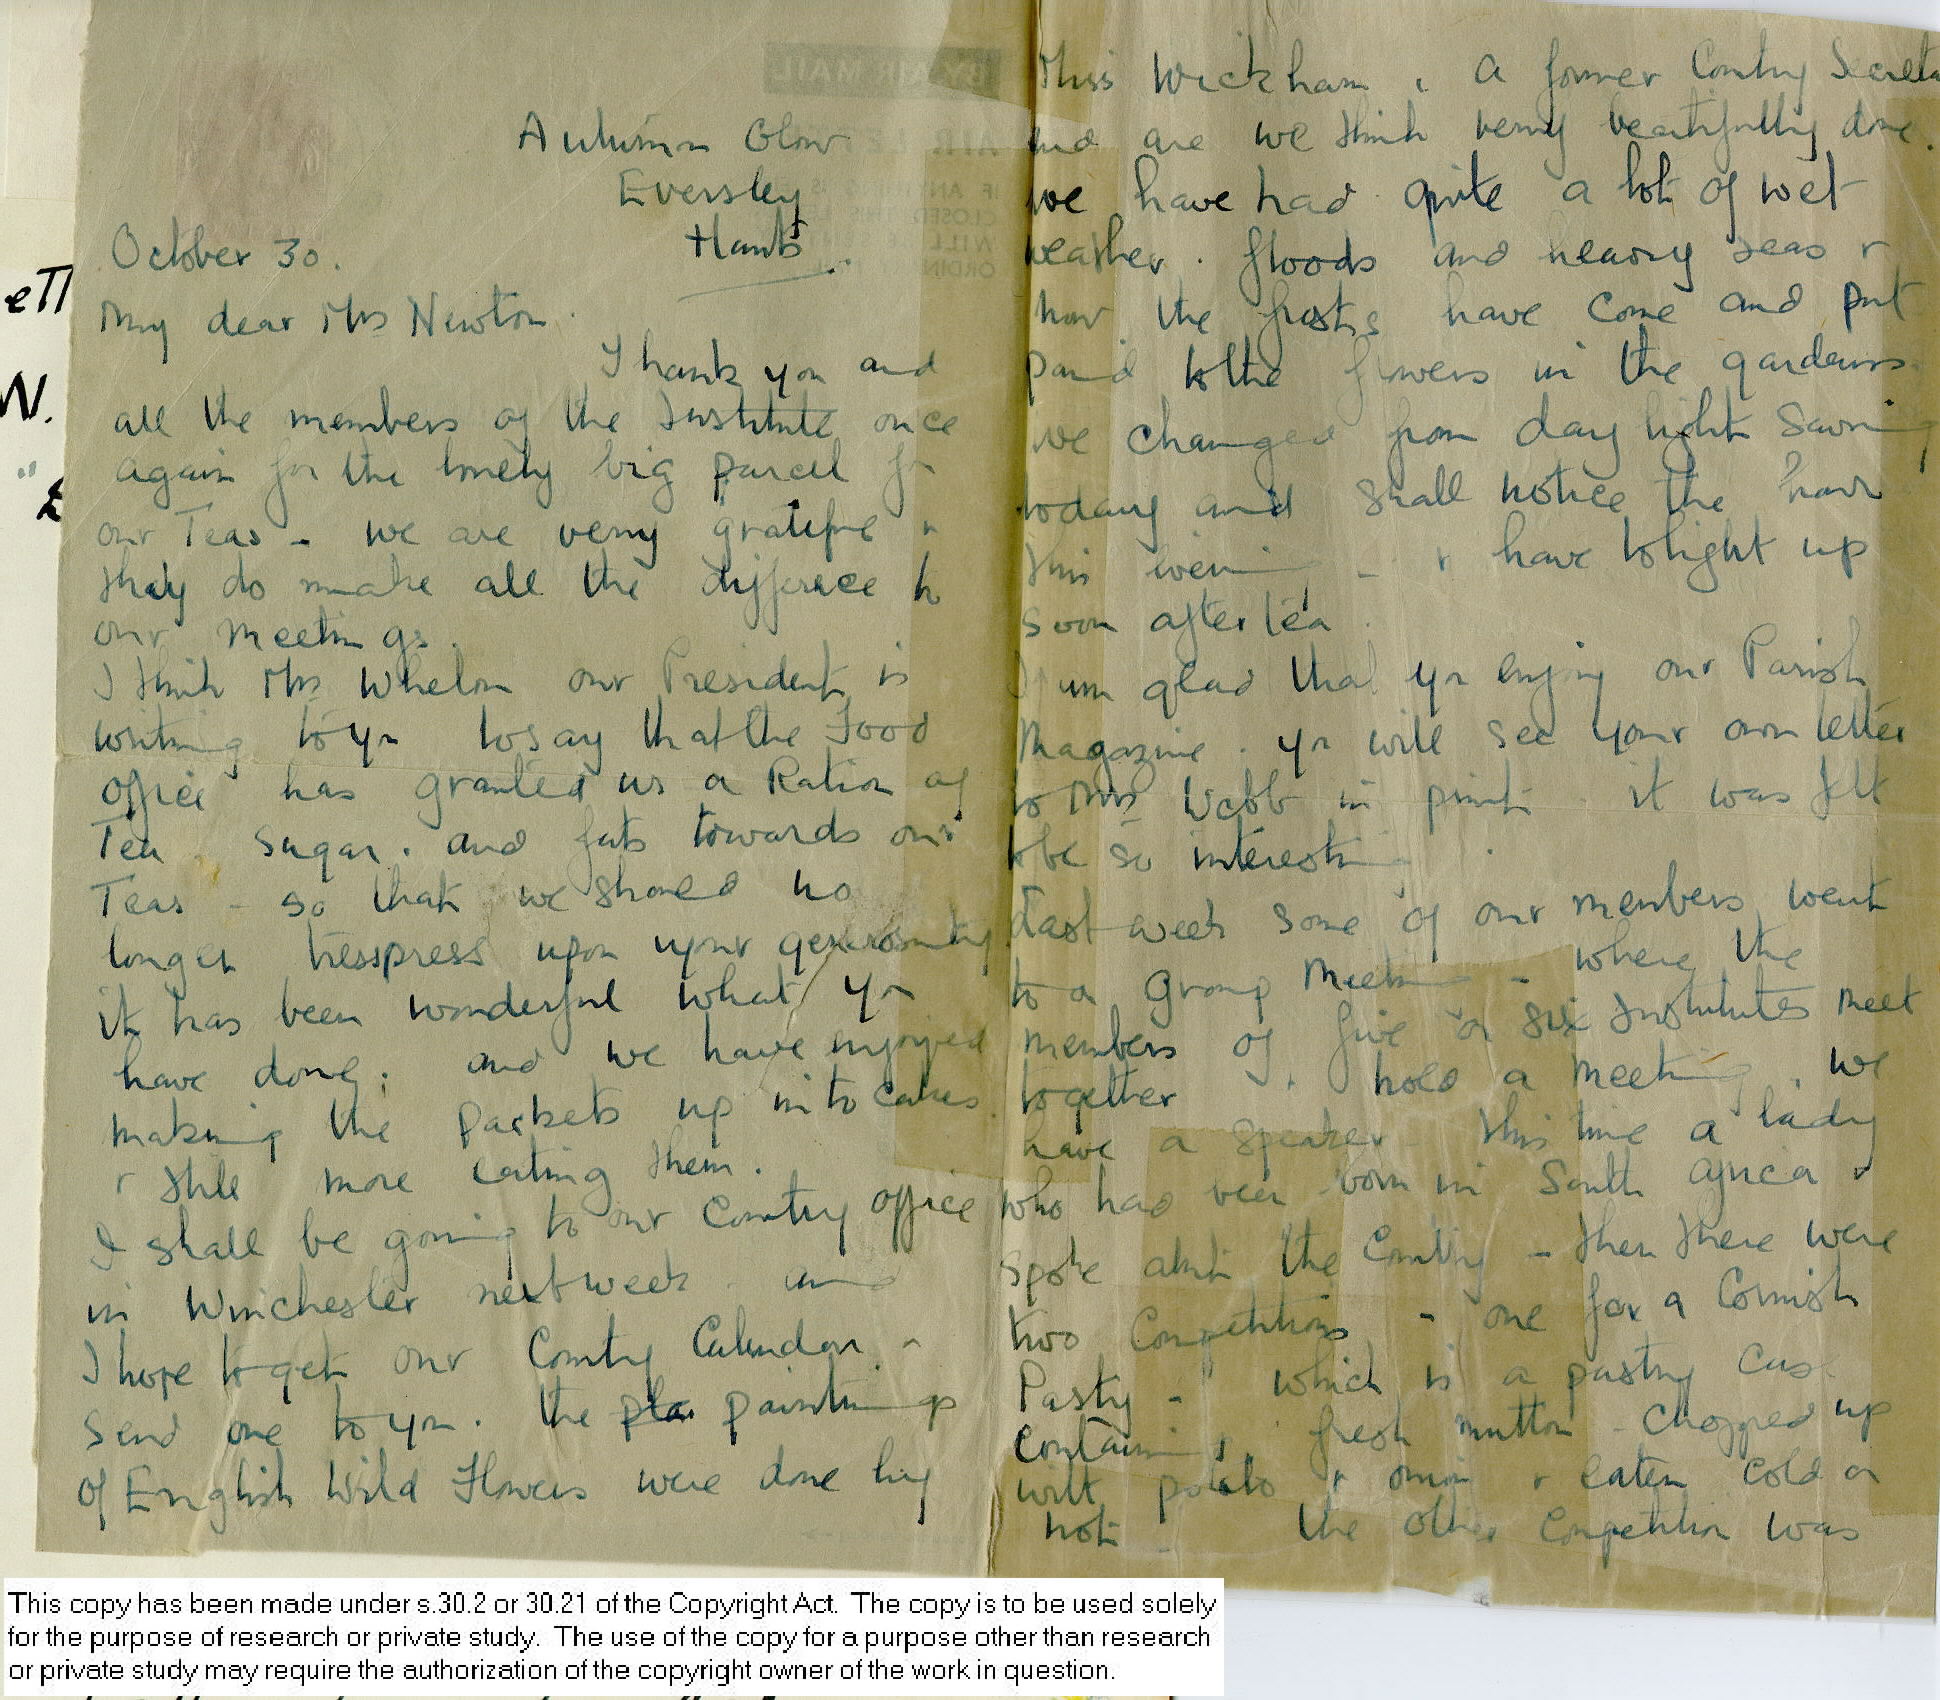 Autumn Glow
Eversley
Hants.
October 30.
My dear Mrs Newton.
Thank you and
all the members of the Institute once
again for the lovely big parcel for
our Teas - we are very grateful &
they do make all the differece to
our meetings.
I think Mrs Whelon our President is
writing to yr to say that the Food
office has granted us a Ration of
Tea . Sugar . and fats towards our
Teas - so that we should no
longer tresspress upon your generosity
it has been wonderful what yr
have done; and we have enjoyed
making the packets up into cakes.
& still more eating them.
I shall be going to our County office
in Winchester next week - and
I hope to get our County Calendar. &
send one to yr. the paintings
of English Wild Flowers were done by
Miss Wickham . a former County Secreta
and are we think very beautifully done.
we have had quite a lot of wet
weather . floods and heavy seas &
now the frosts have come and put
paid to the flowers in the gardens.
we changed from day light Saving
today and shall notice the hour
this evening - & have to light up
soon after tea.
I am glad that yr enjoy our Parish
Magazine . yr will see your own letter
to Mrs Webb in print . it was felt
to be so interesting.
Last week some of our members went
to a Group Meeting - where the
members of five or six Institutes meet
together & hold a meeting . we
have a speaker - this time a lady
who had been born in South Africa &
spoke about the County - then there were
two Competitions - one for a Cornish
Pasty - which is a pastry case
containing fresh mutton - chopped up
with potato & onion & eaten cold or
hot - the other Competition was
BY AIR MAIL
AIR LE
IF ANYTHING IS
ett
W.
This copy has been made under s.30.2 or 30.21 of the Copyright Act. The copy is to be used solely
for the purpose of research or private study. The use of the copy for a purpose other than research
or private study may require the authorization of the copyright owner of the work in question.